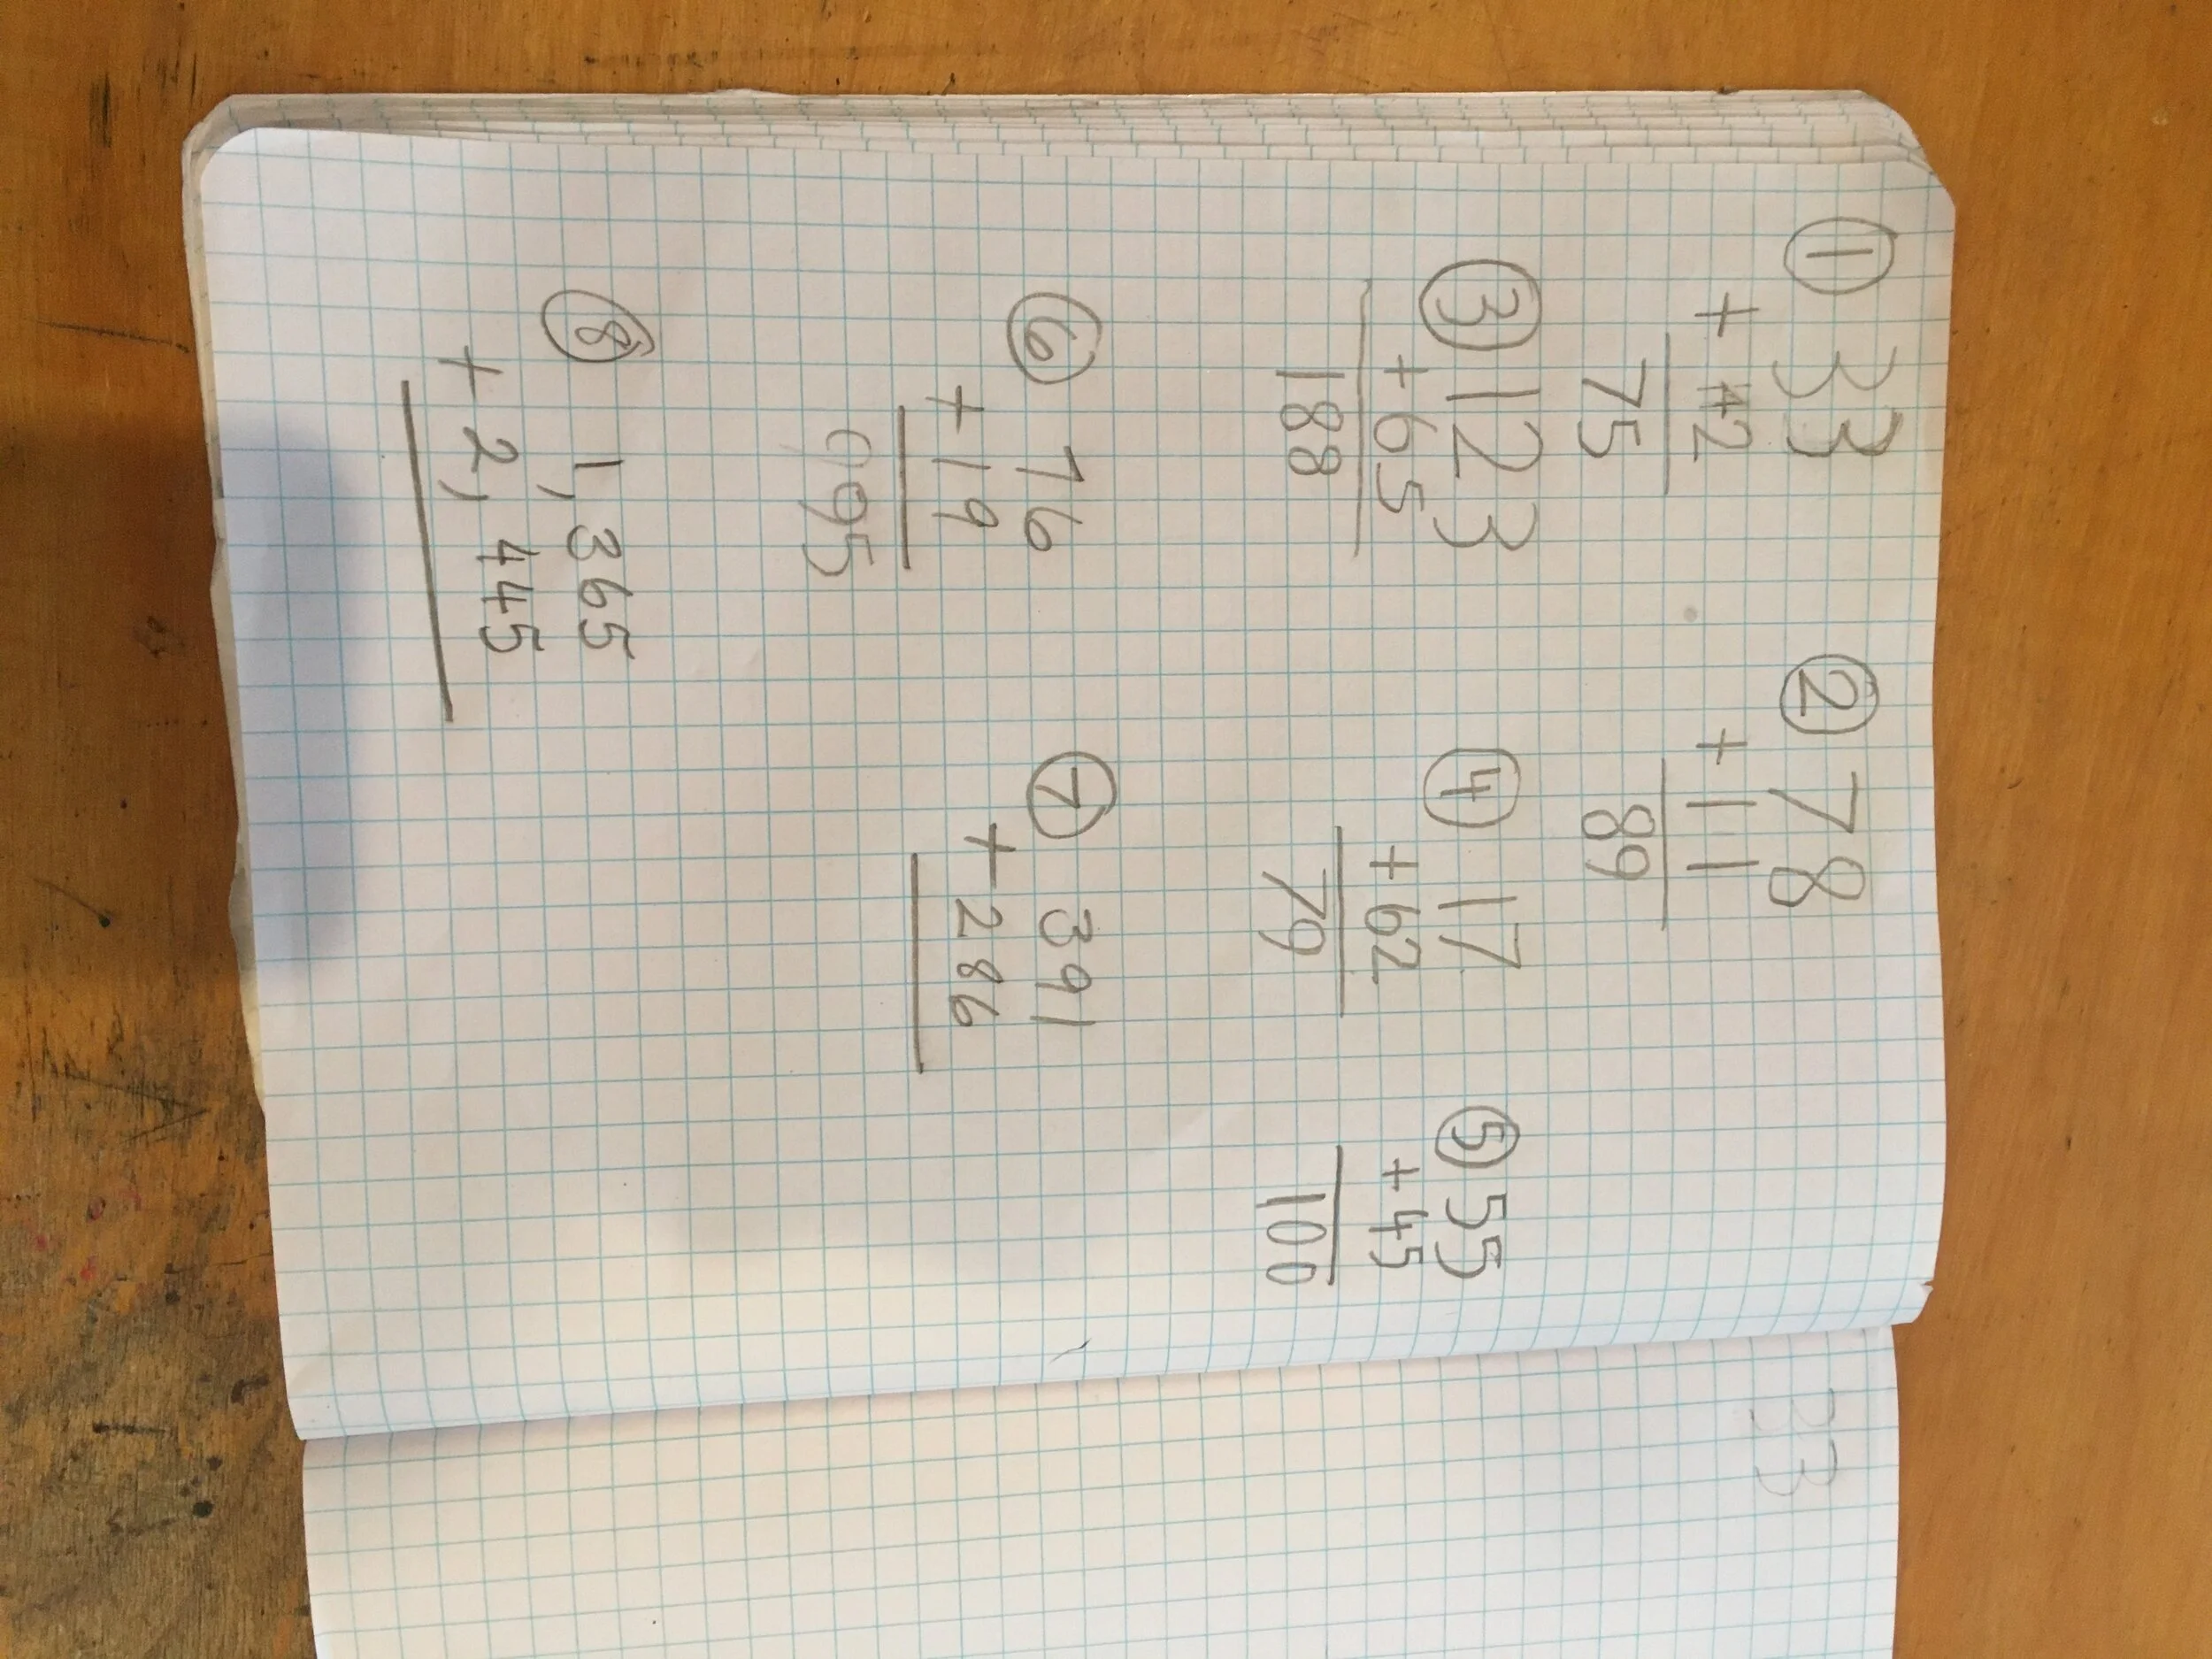 ① 33
+ 42
75
② 78
+ 11
89
③ 123
+ 65
188
④ 17
+ 62
79
⑤ 55
+ 45
100
⑥ 76
+ 19
095
⑦ 391
+ 286
⑧ 1,365
+ 2,445
33